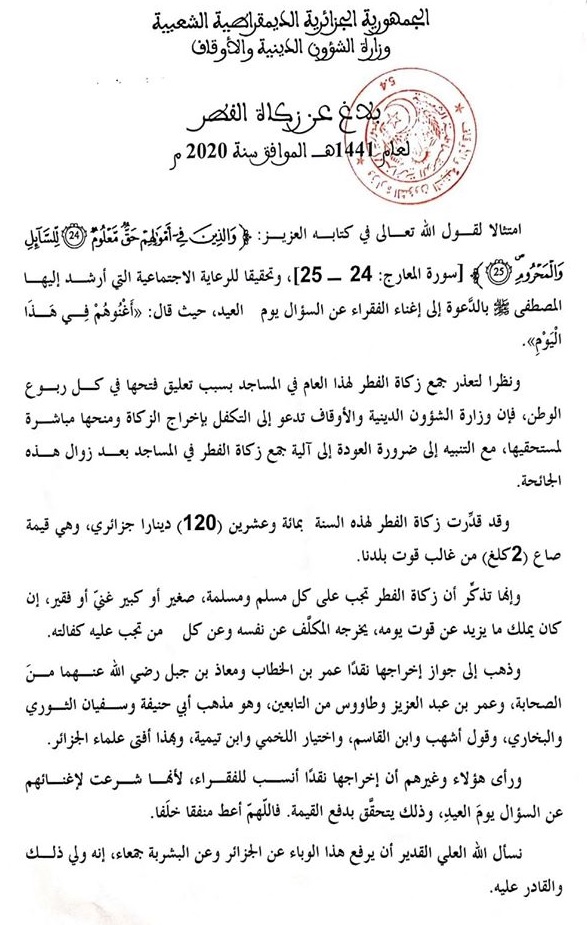 الجمهورية الجزائرية الديمقراطية الشعبية
وزارة الشؤون الدينية والأوقاف
بلاغ عن زكاة الفطر
لعام 1441هـ الموافق سنة 2020 م
امتثالا لقول الله تعالى في كتابه العزيز: ﴿ وَالَّذِينَ فِي أَمْوَالِهِمْ حَقٌّ مَّعْلُومٌ (24) لِّلسَّآئِلِ
وَالْمَحْرُومِ (25) ﴾ [سورة المعارج: 24 – 25]، وتحقيقا للرعاية الاجتماعية التي أرشد إليها
المصطفى ﷺ بالدَّعوة إلى إغناء الفقراء عن السؤال يوم العيد، حيث قال: «أَغْنُوهُمْ فِي هَذَا
الْيَوْمِ».
ونظرا لتعذر جمع زكاة الفطر لهذا العام في المساجد بسبب تعليق فتحها في كل ربوع
الوطن، فإن وزارة الشؤون الدينية والأوقاف تدعو إلى التكفل بإخراج الزكاة ومنحها مباشرة
لمستحقيها، مع التنبيه إلى ضرورة العودة إلى آلية جمع زكاة الفطر في المساجد بعد زوال هذه
الجائحة.
وقد قدِّرت زكاة الفطر لهذه السنة بمائة وعشرين (120) دينارا جزائري، وهي قيمة
صاع (2كلغ) من غالب قوت بلدنا.
وإنها تذكِّر أن زكاة الفطر تجب على كل مسلم ومسلمة، صغير أو كبير غنيّ أو فقير، إن
كان يملك ما يزيد عن قوت يومه، يخرجه المكلّف عن نفسه وعن كل من تجب عليه كفالته.
وذهب إلى جواز إخراجها نقدًا عمر بن الخطاب ومعاذ بن جبل رضي الله عنهما منَ
الصحابة، وعمر بن عبد العزيز وطاووس من التابعين، وهو مذهب أبي حنيفة وسفيان الثوري
والبخاري، وقول أشهب وابن القاسم، واختيار اللخمي وابن تيمية، وبهذا أفتى علماء الجزائر.
ورأى هؤلاء وغيرهم أن إخراجها نقدًا أنسب للفقراء، لأنها شرعت لإغنائهم
عن السؤال يومَ العيدِ، وذلك يتحقَّق بدفع القيمة. فاللّهمّ أعط منفقا خلَفا.
نسأل الله العلي القدير أن يرفع هذا الوباء عن الجزائر وعن البشرية جمعاء، إنه ولي ذلك
والقادر عليه.